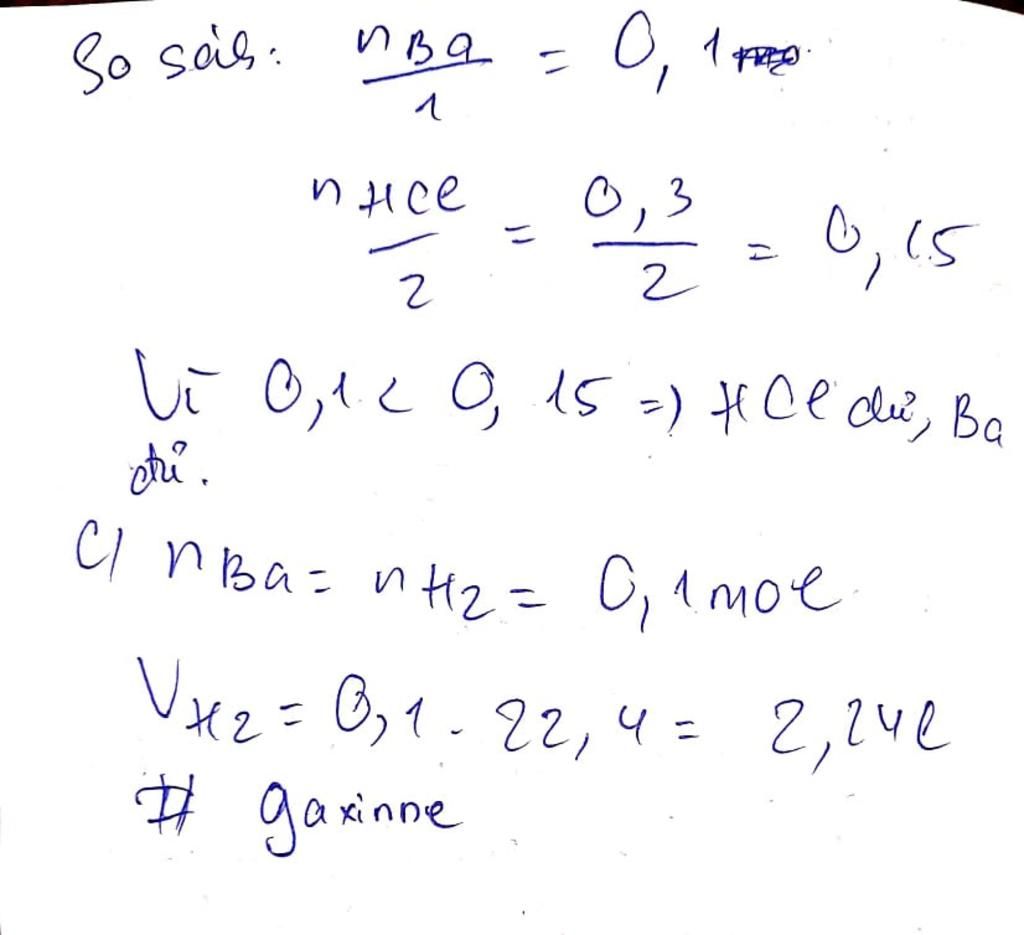 So sáh: nBa/1 = 0,1
nHCl/2 = 0,3/2 = 0,15
Vì 0,1 < 0,15 => HCl dư, Ba
đủ.
C/ nBa = nH2 = 0,1 mol
VH2 = 0,1 . 22,4 = 2,24l
# gaxinne